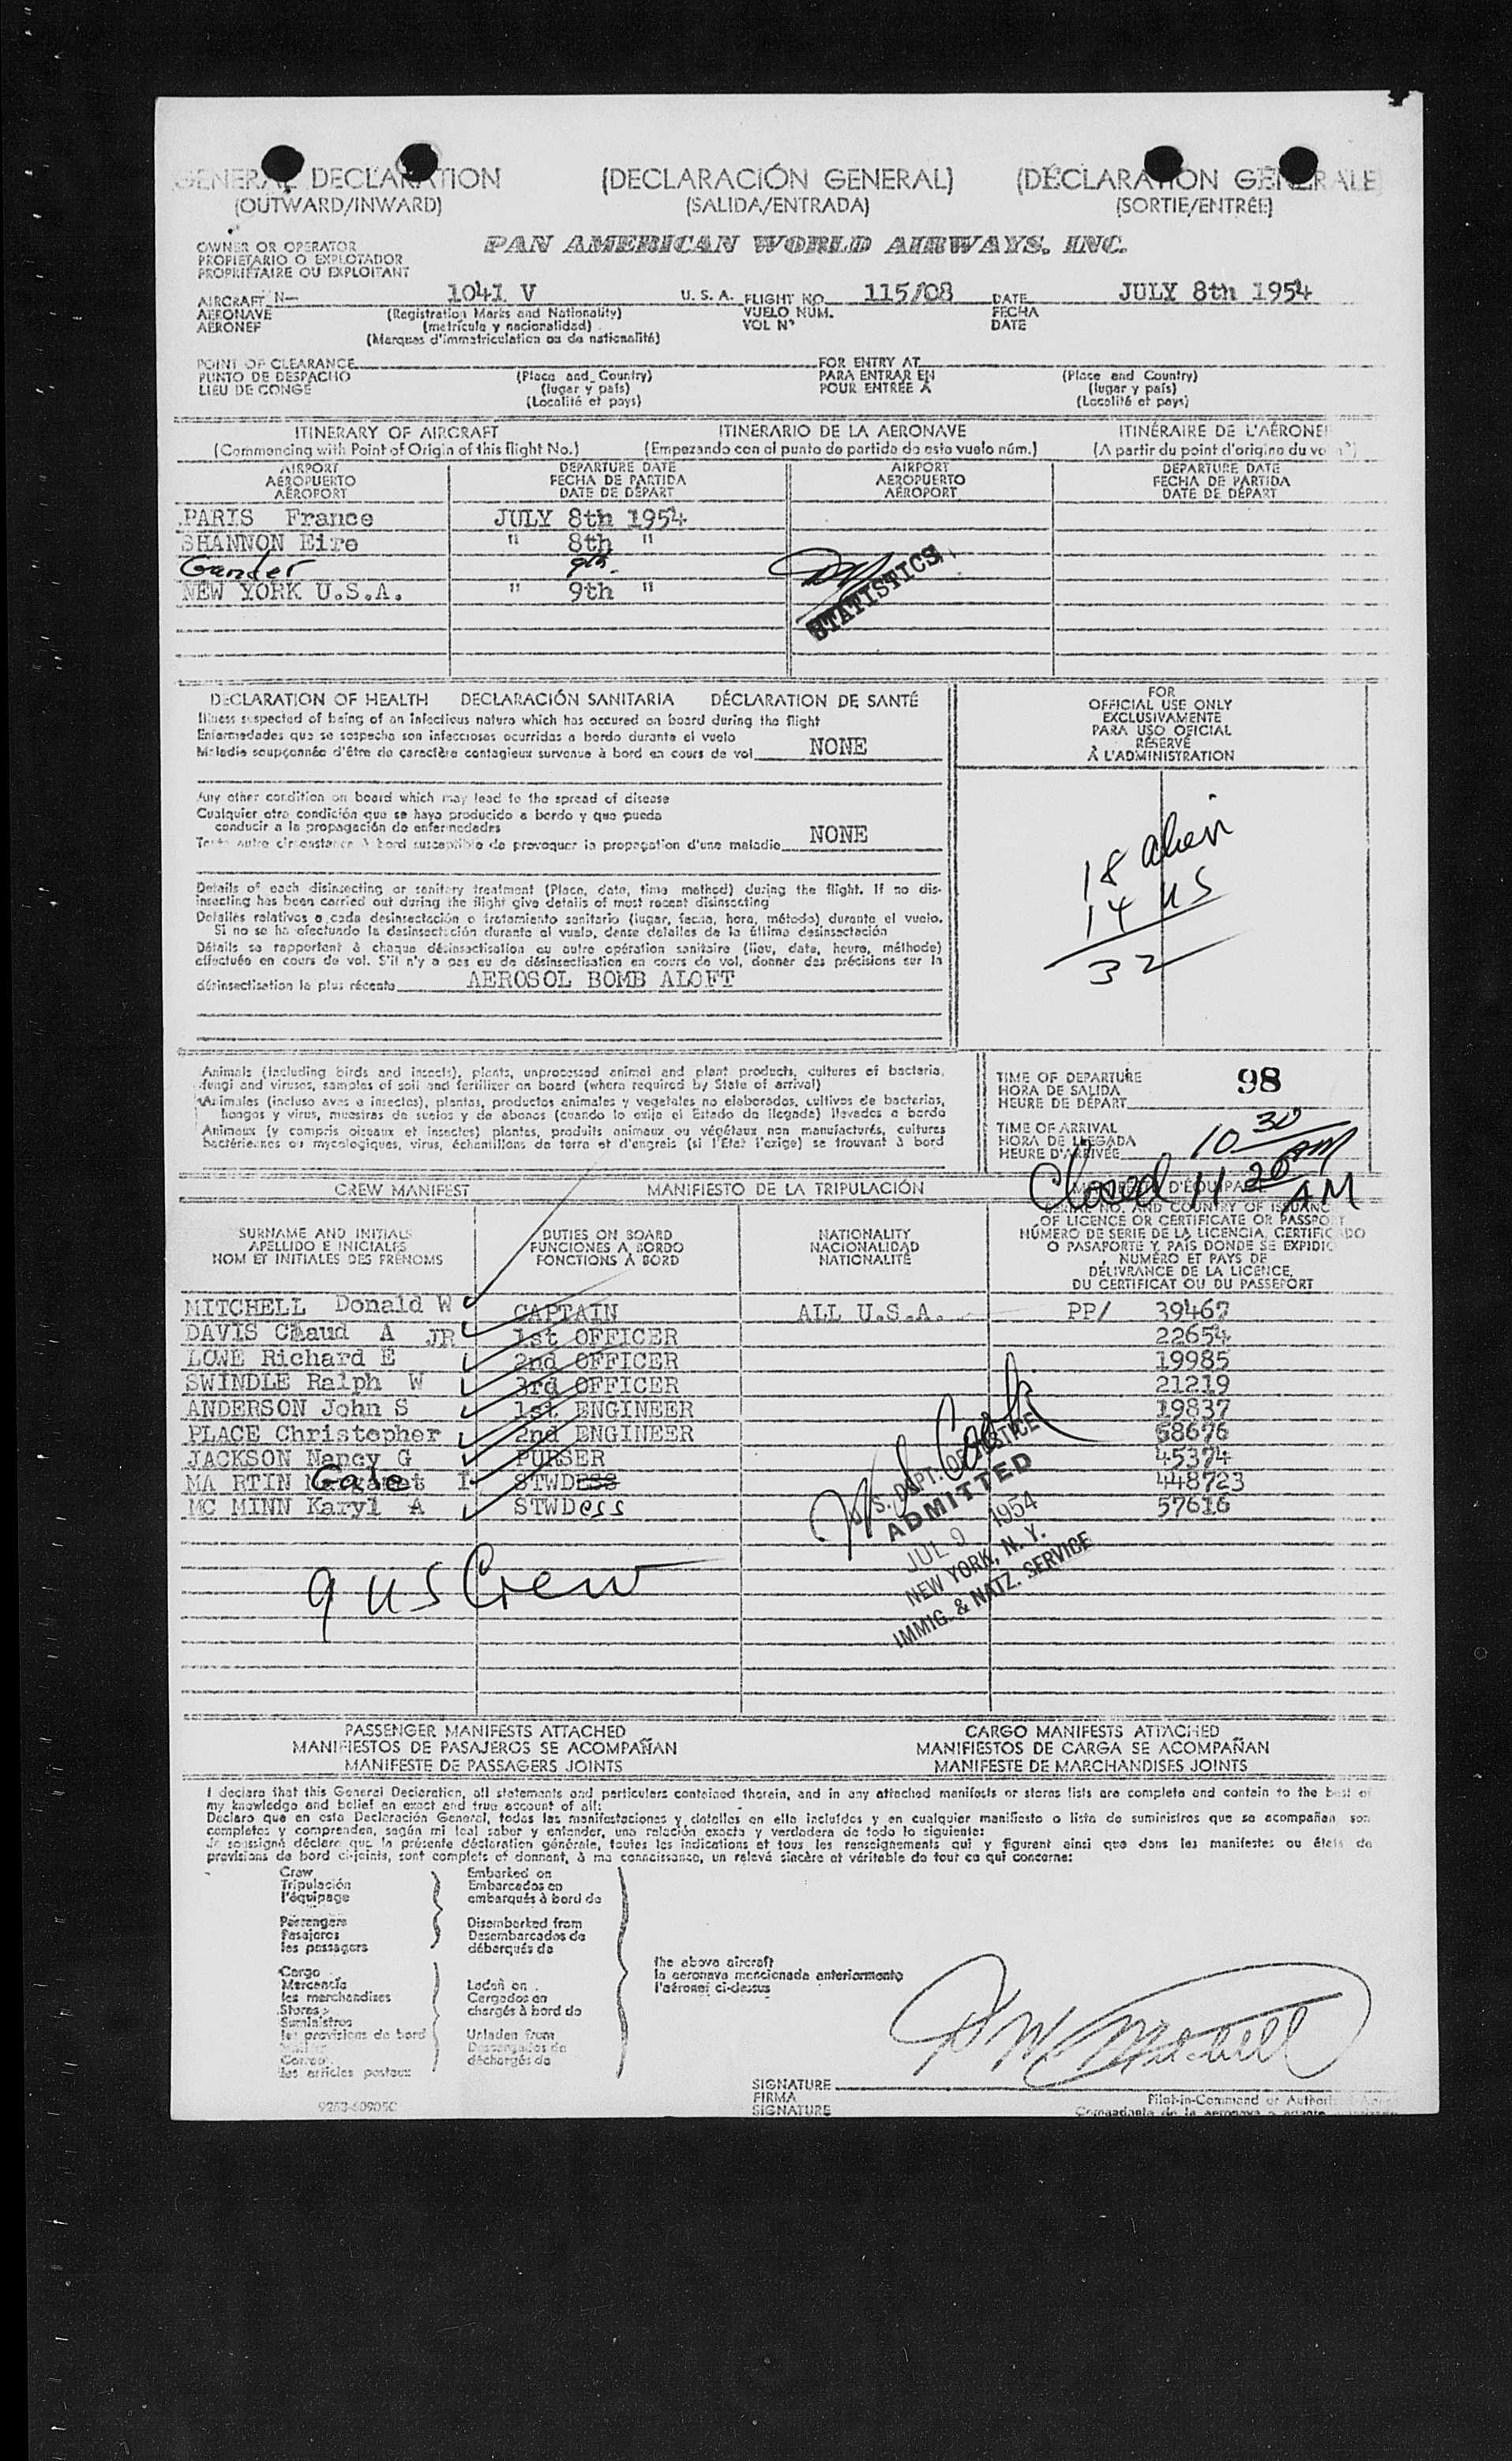 GENERAL DECLARATION (DECLARACIÓN GENERAL) (DÉCLARATION GÉNÉRALE)
(OUTWARD/INWARD) (SALIDA/ENTRADA) (SORTIE/ENTRÉE)
OWNER OR OPERATOR
PROPIETARIO O EXPLOTADOR
PROPRIÉTAIRE OU EXPLOITANT
PAN AMERICAN WORLD AIRWAYS, INC.
AIRCRAFT N— 1041 V U. S. A. FLIGHT NO. 115/08 DATE JULY 8th 1954
AERONAVE (Registration Marks and Nationality) VUELO NÚM. FECHA
AÉRONEF (matrícula y nacionalidad) VOL Nº DATE
(Marques d'immatriculation ou de nationalité)
POINT OF CLEARANCE FOR ENTRY AT
PUNTO DE DESPACHO (Place and Country) PARA ENTRAR EN (Place and Country)
LIEU DE CONGÉ (lugar y país) POUR ENTRÉE À (lugar y país)
(Localité et pays) (Localité et pays)
ITINERARY OF AIRCRAFT ITINERARIO DE LA AERONAVE ITINÉRAIRE DE L'AÉRONEF
(Commencing with Point of Origin of this flight No.) (Empezando con el punto de partida de este vuelo núm.) (A partir du point d'origine du vol nº)
AIRPORT DEPARTURE DATE AIRPORT DEPARTURE DATE
AEROPUERTO FECHA DE PARTIDA AEROPUERTO FECHA DE PARTIDA
AÉROPORT DATE DE DÉPART AÉROPORT DATE DE DÉPART
PARIS France JULY 8th 1954
SHANNON Eire " 8th "
Gander 9th.
NEW YORK U.S.A. " 9th "
STATISTICS
DECLARATION OF HEALTH DECLARACIÓN SANITARIA DÉCLARATION DE SANTÉ
Illness suspected of being of an infectious nature which has occured on board during the flight
Enfermedades que se sospecha son infecciosas ocurridas a bordo durante el vuelo
Maladie soupçonnée d'être de caractère contagieux survenue à bord en cours de vol NONE
Any other condition on board which may lead to the spread of disease
Cualquier otra condición que se haya producido a bordo y que pueda
conducir a la propagación de enfermedades
Toute autre circonstance à bord susceptible de provoquer la propagation d'une maladie NONE
Details of each disinsecting or sanitary treatment (Place, date, time method) during the flight. If no dis-
insecting has been carried out during the flight give details of most recent disinsecting
Detalles relativos a cada desinsectación o tratamiento sanitario (lugar, fecha, hora, método) durante el vuelo.
Si no se ha efectuado la desinsectación durante el vuelo, dense detalles de la última desinsectación
Détails se rapportant à chaque désinsectisation ou autre opération sanitaire (lieu, date, heure, méthode)
effectuée en cours de vol. S'il n'y a pas eu de désinsectisation en cours de vol, donner des précisions sur la
désinsectisation la plus récente AEROSOL BOMB ALOFT
FOR
OFFICIAL USE ONLY
EXCLUSIVAMENTE
PARA USO OFICIAL
RÉSERVÉ
À L'ADMINISTRATION
18 alien
14 US
32
Animals (including birds and insects), plants, unprocessed animal and plant products, cultures of bacteria,
fungi and viruses, samples of soil and fertilizer on board (where required by State of arrival)
Animales (incluso aves e insectos), plantas, productos animales y vegetales no elaborados, cultivos de bacterias,
hongos y virus, muestras de suelos y de abonos (cuando lo exija el Estado de llegada) llevados a bordo
Animaux (y compris oiseaux et insectes) plantes, produits animaux ou végétaux non manufacturés, cultures
bactériennes ou mycologiques, virus, échantillons de terre et d'engrais (si l'État l'exige) se trouvant à bord
TIME OF DEPARTURE 98
HORA DE SALIDA
HEURE DE DÉPART
TIME OF ARRIVAL
HORA DE LLEGADA
HEURE D'ARRIVÉE 10 30 AM
Closed 11 20 AM
CREW MANIFEST MANIFIESTO DE LA TRIPULACIÓN D'ÉQUIPAGE
SURNAME AND INITIALS DUTIES ON BOARD NATIONALITY
APELLIDO E INICIALES FUNCIONES A BORDO NACIONALIDAD
NOM ET INITIALES DES PRÉNOMS FONCTIONS À BORD NATIONALITÉ
SERIAL NO. AND COUNTRY OF ISSUANCE
OF LICENCE OR CERTIFICATE OR PASSPORT
NÚMERO DE SERIE DE LA LICENCIA, CERTIFICADO
O PASAPORTE Y PAÍS DONDE SE EXPIDIÓ
NUMÉRO ET PAYS DE
DÉLIVRANCE DE LA LICENCE,
DU CERTIFICAT OU DU PASSEPORT
MITCHELL Donald W CAPTAIN ALL U.S.A. PP/ 39467
DAVIS Claud A JR 1st OFFICER 22654
LOWE Richard E 2nd OFFICER 19985
SWINDLE Ralph W 3rd OFFICER 21219
ANDERSON John S 1st ENGINEER 19837
PLACE Christopher 2nd ENGINEER 68676
JACKSON Nancy G PURSER 45374
MA RTIN Gale I STWDESS 448723
MC MINN Karyl A STWDess 57616
U.S. DEPT. OF JUSTICE
ADMITTED
JUL 9 1954
NEW YORK, N. Y.
IMMIG. & NATZ. SERVICE
9 US Crew
PASSENGER MANIFESTS ATTACHED CARGO MANIFESTS ATTACHED
MANIFIESTOS DE PASAJEROS SE ACOMPAÑAN MANIFIESTOS DE CARGA SE ACOMPAÑAN
MANIFESTE DE PASSAGERS JOINTS MANIFESTE DE MARCHANDISES JOINTS
I declare that this General Declaration, all statements and particulars contained therein, and in any attached manifests or stores lists are complete and contain to the best of
my knowledge and belief an exact and true account of all:
Declaro que en esta Declaración General, todas las manifestaciones y detalles en ella incluidos y en cualquier manifiesto o lista de suministros que se acompañan son
completos y comprenden, según mi leal saber y entender, una relación exacta y verdadera de todo lo siguiente:
Je soussigné déclare que la présente déclaration générale, toutes les indications et tous les renseignements qui y figurent ainsi que dans les manifestes ou états de
provisions de bord ci-joints, sont complets et donnent, à ma connaissance, un relevé sincère et véritable de tout ce qui concerne:
Crew Embarked on
Tripulación Embarcados en
l'équipage embarqués à bord de
Passengers Disembarked from
Pasajeros Desembarcados de
les passagers débarqués de
the above aircraft
la aeronave mencionada anteriormente
l'aéronef ci-dessus
Cargo
Mercancía Laden on
les marchandises Cargados en
Stores chargés à bord de
Suministros
les provisions de bord Unladen from
Descargados de
Correo déchargés de
les articles postaux
D W Mitchell
SIGNATURE
FIRMA Pilot-in-Command or Authorized
SIGNATURE Comandante de la aeronave o agente
9253-60905C